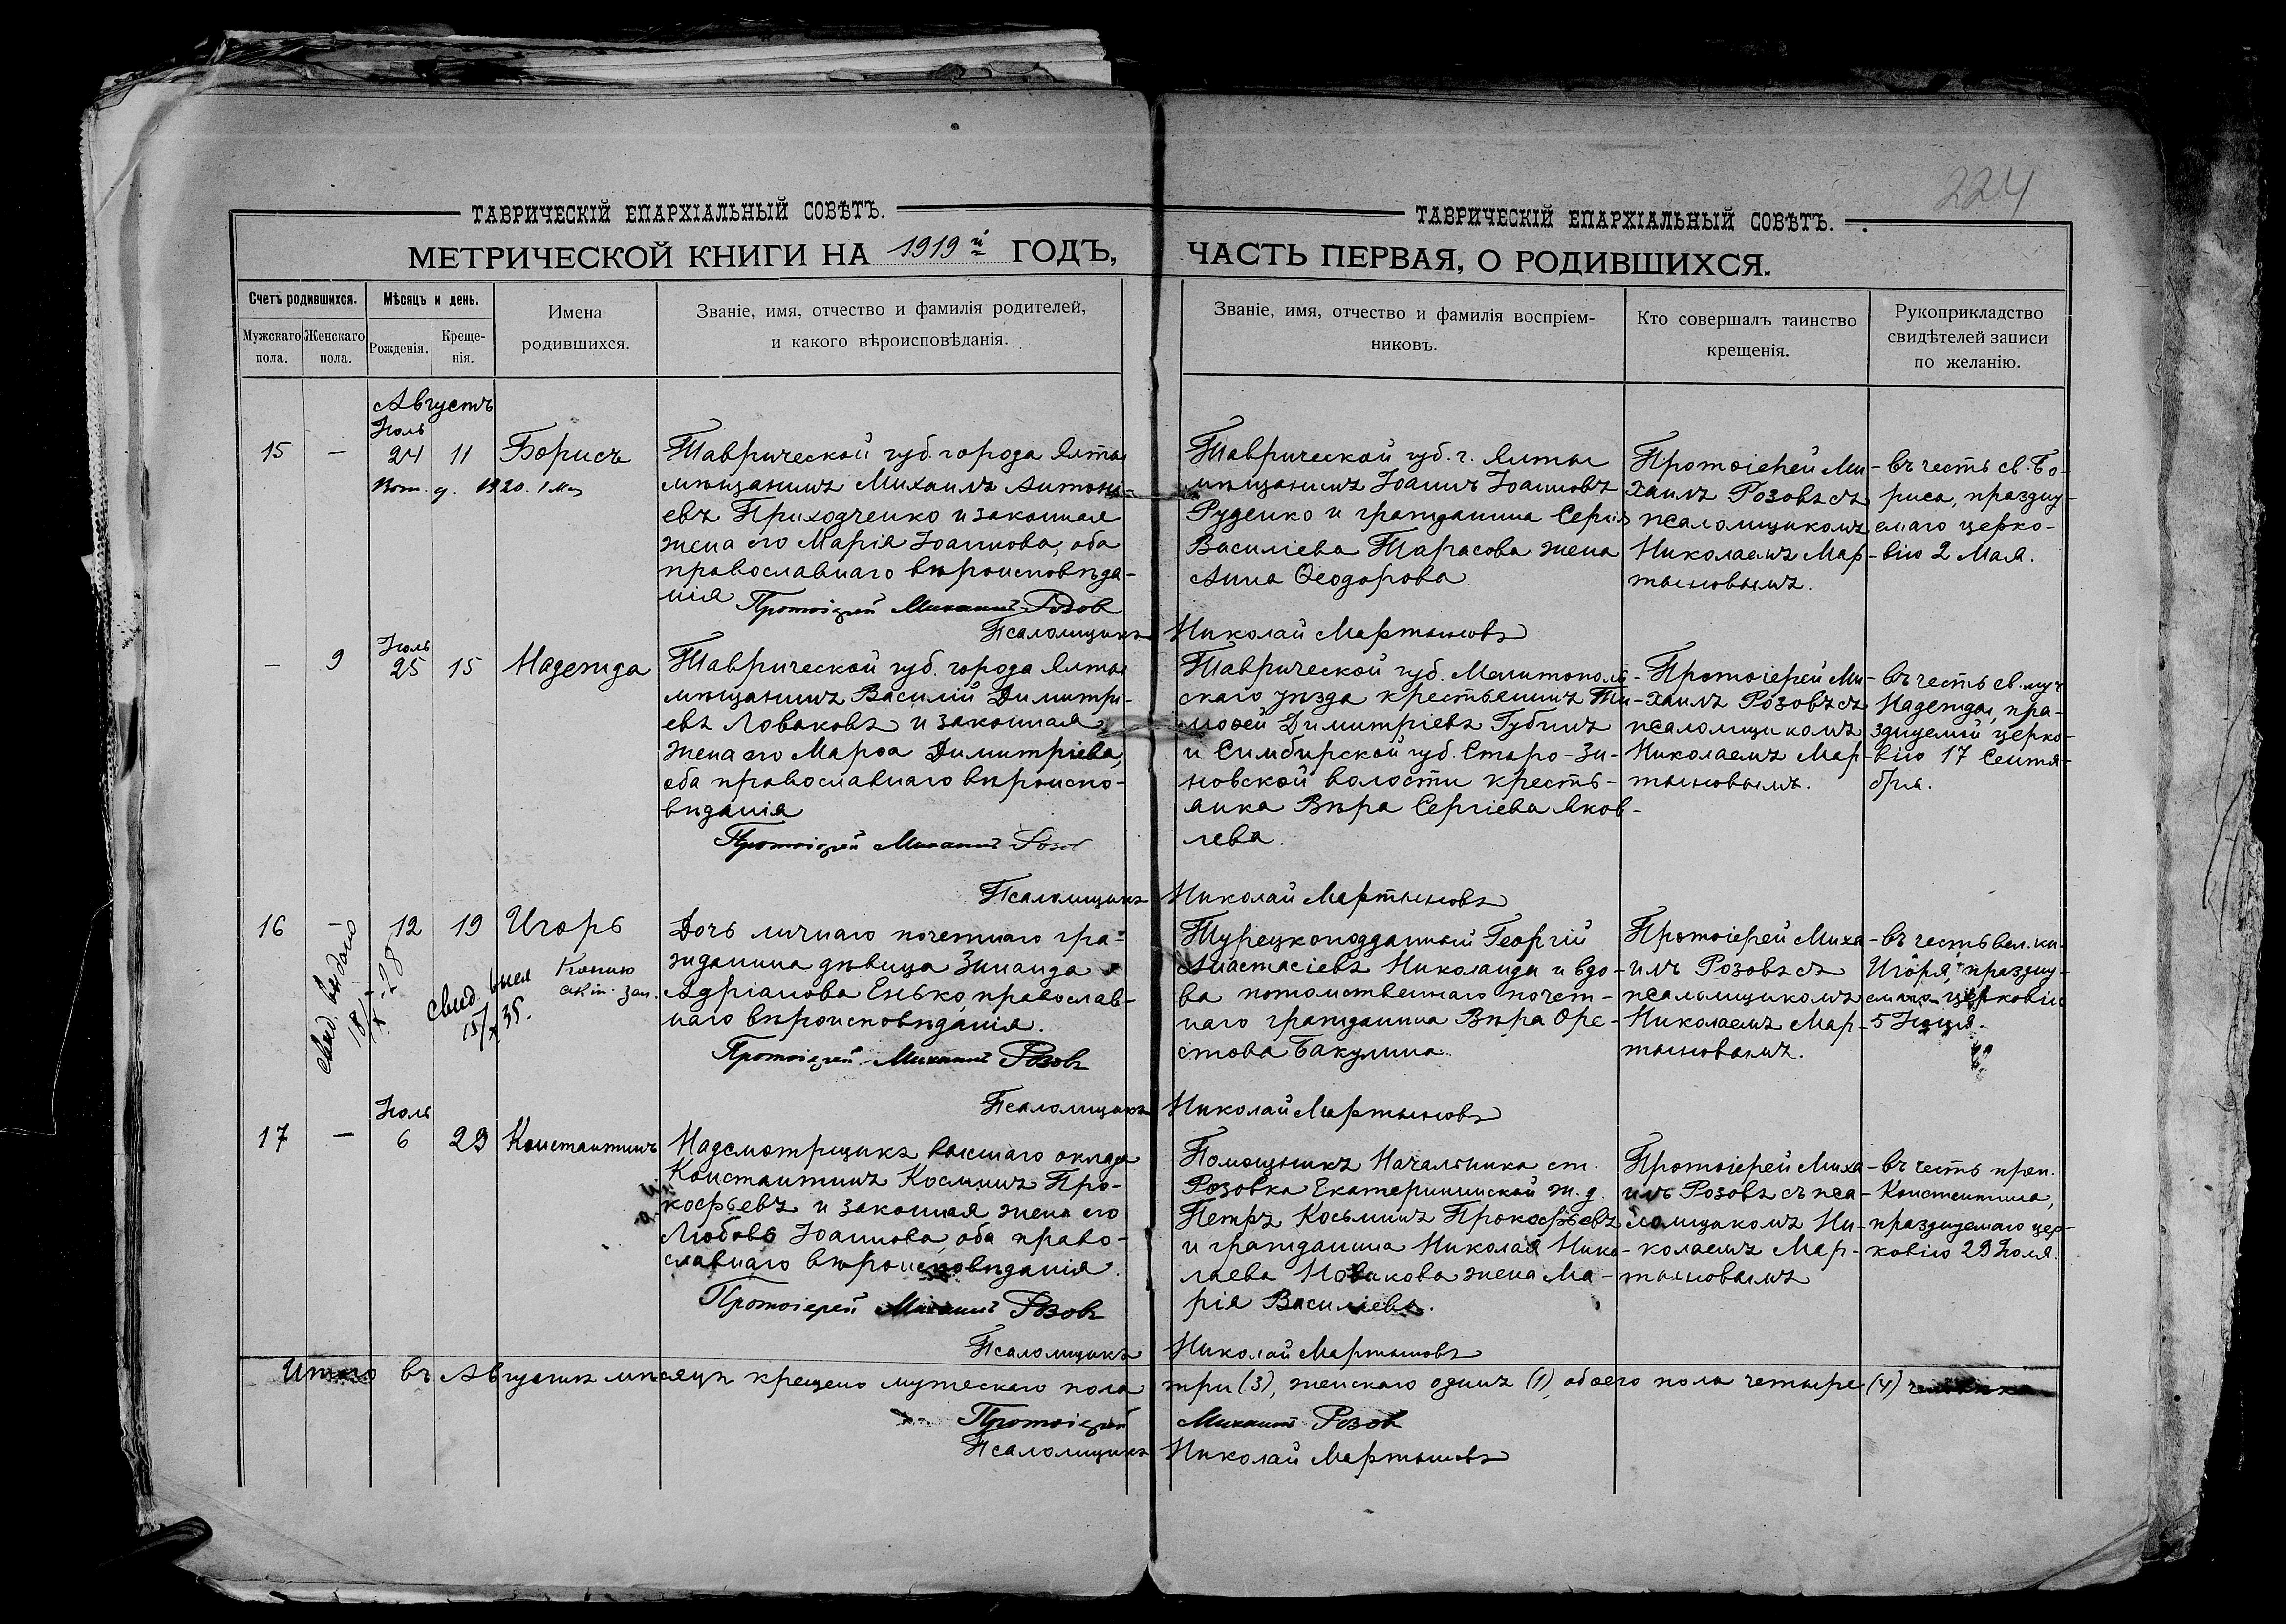 224
ТАВРИЧЕСКІЙ ЕПАРХІАЛЬНЫЙ СОВѢТЪ.
МЕТРИЧЕСКОЙ КНИГИ НА 1919й ГОДЪ,
Счетъ родившихся.
Мужскаго пола.
Женскаго пола.
Мѣсяцъ и день.
Рожденія.
Креще-
нія.
Имена
родившихся.
Званіе, имя, отчество и фамилія родителей,
и какого вѣроисповѣданія.
ТАВРИЧЕСКІЙ ЕПАРХІАЛЬНЫЙ СОВѢТЪ.
ЧАСТЬ ПЕРВАЯ, О РОДИВШИХСЯ.
Званіе, имя, отчество и фамилія воспріем-
никовъ.
Кто совершалъ таинство
крещенія.
Рукоприкладство
свидѣтелей записи
по желанію.
Августъ
Іюль
15 — 24 11 Борисъ
1920.
Таврической губ. города Ялты
мѣщанинъ Михаилъ Антоні-
евъ Приходченко и законная
жена его Марія Іоаннова, оба
православнаго вѣроисповѣда-
нія
Протоіерей Михаилъ Розов
Таврической губ. г. Ялты
мѣщанинъ Іоаннъ Іоанновъ
Руденко и гражданина Сергія
Василіева Тарасова жена
Анна Ѳеодорова
Протоіерей Ми-
хаилъ Розовъ съ
псаломщикомъ
Николаемъ Мар-
тыновымъ.
въ честь св. Бо-
риса, праздну-
емаго церко-
вію 2 Мая.
Псаломщикъ Николай Мартыновъ
Іюль
— 9 25 15 Надежда
Таврической губ. города Ялты
мѣщанинъ Василій Димитрі-
евъ Ловаковъ и законная
жена его Марѳа Димитріева,
оба православнаго вѣроиспо-
вѣданія
Протоіерей Михаилъ Розов
Таврической губ. Мелитополь-
скаго уѣзда крестьянинъ Ти-
моѳей Димитріевъ Губинъ
и Симбирской губ. Старо-Зи-
новской волости кресть-
янка Вѣра Сергіева Яков-
лева.
Протоіерей Ми-
хаилъ Розовъ съ
псаломщикомъ
Николаемъ Мар-
тыновымъ.
въ честь св. муч
Надежды, пра-
зднуемой церко-
вію 17 Сентя-
бря.
Псаломщикъ Николай Мартыновъ
16 — 12 19 Игорь
свид. выдано
18/X 28
свид.
15/X 35.
Копию
акт. зап.
Дочь личнаго почетнаго гра-
жданина дѣвица Зинаида
Адріанова Енько, православ-
наго вѣроисповѣданія.
Протоіерей Михаилъ Розовъ
Турецкоподданный Георгій
Анастасіевъ Николаиди и вдо-
ва потомственнаго почет-
наго гражданина Вѣра Оре-
стова Бакулина.
Протоіерей Миха-
илъ Розовъ съ
псаломщикомъ
Николаемъ Мар-
тыновымъ.
въ честь вел. кн.
Игоря, праздну-
емаго церковію
5 Іюня.
Псаломщикъ Николай Мартыновъ
Іюль
17 — 6 29 Константинъ
Надсмотрщикъ высшаго оклада
Константинъ Косминъ Про-
кофьевъ и законная жена его
Любовь Іоаннова, оба право-
славнаго вѣроисповѣданія.
Протоіерей Михаилъ Розовъ
Помощникъ Начальника ст.
Розовка Екатерининской ж. д.
Петръ Косьминъ Прокофьевъ
и гражданина Николая Нико-
лаева Новикова жена Ма-
рія Василіева.
Протоіерей Миха-
илъ Розовъ съ пса-
ломщикомъ Ни-
колаемъ Мар-
тыновымъ
въ честь преп.
Константина,
празднуемаго цер-
ковію 29 Іюля.
Псаломщикъ Николай Мартыновъ
Итого въ Августѣ мѣсяцѣ крещено мужескаго пола три (3), женскаго одинъ (1), обоего пола четыре (4) человѣка
Протоіерей Михаилъ Розов
Псаломщикъ Николай Мартыновъ